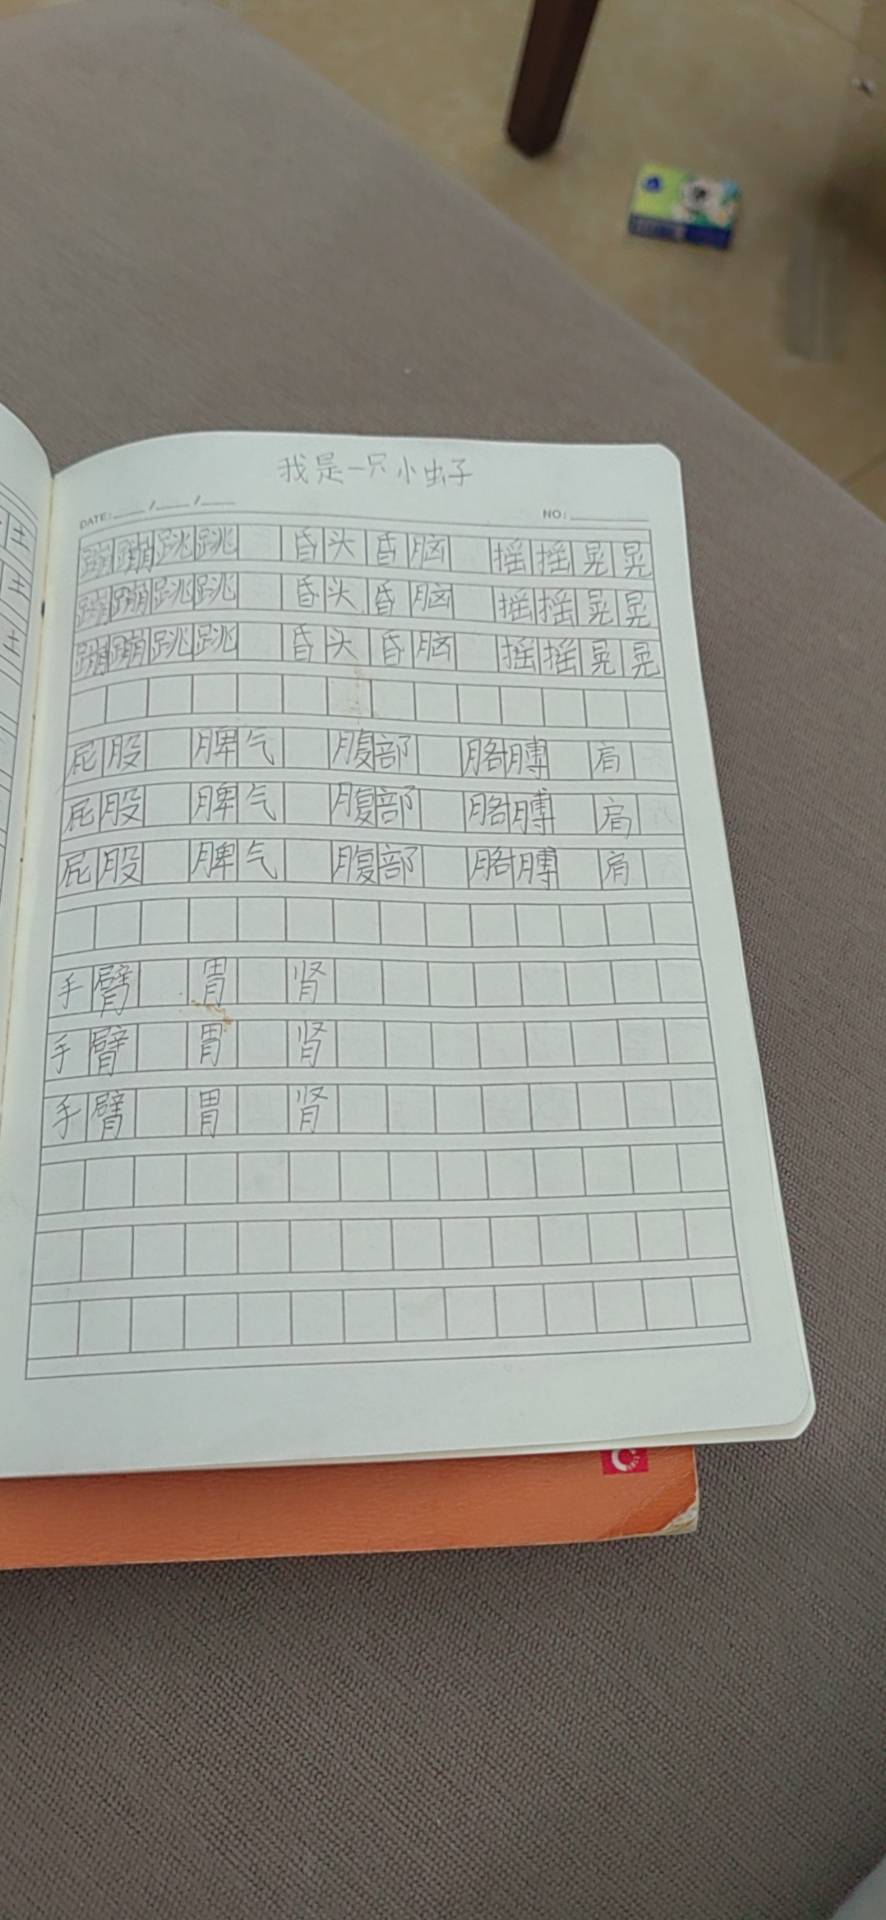 我是一只小虫子
DATE: / /
NO:
蹦蹦跳跳 昏头昏脑 摇摇晃晃
蹦蹦跳跳 昏头昏脑 摇摇晃晃
蹦蹦跳跳 昏头昏脑 摇摇晃晃
屁股 脾气 腹部 胳膊 肩
屁股 脾气 腹部 胳膊 肩
屁股 脾气 腹部 胳膊 肩
手臂 胃 肾
手臂 胃 肾
手臂 胃 肾
土
土
土